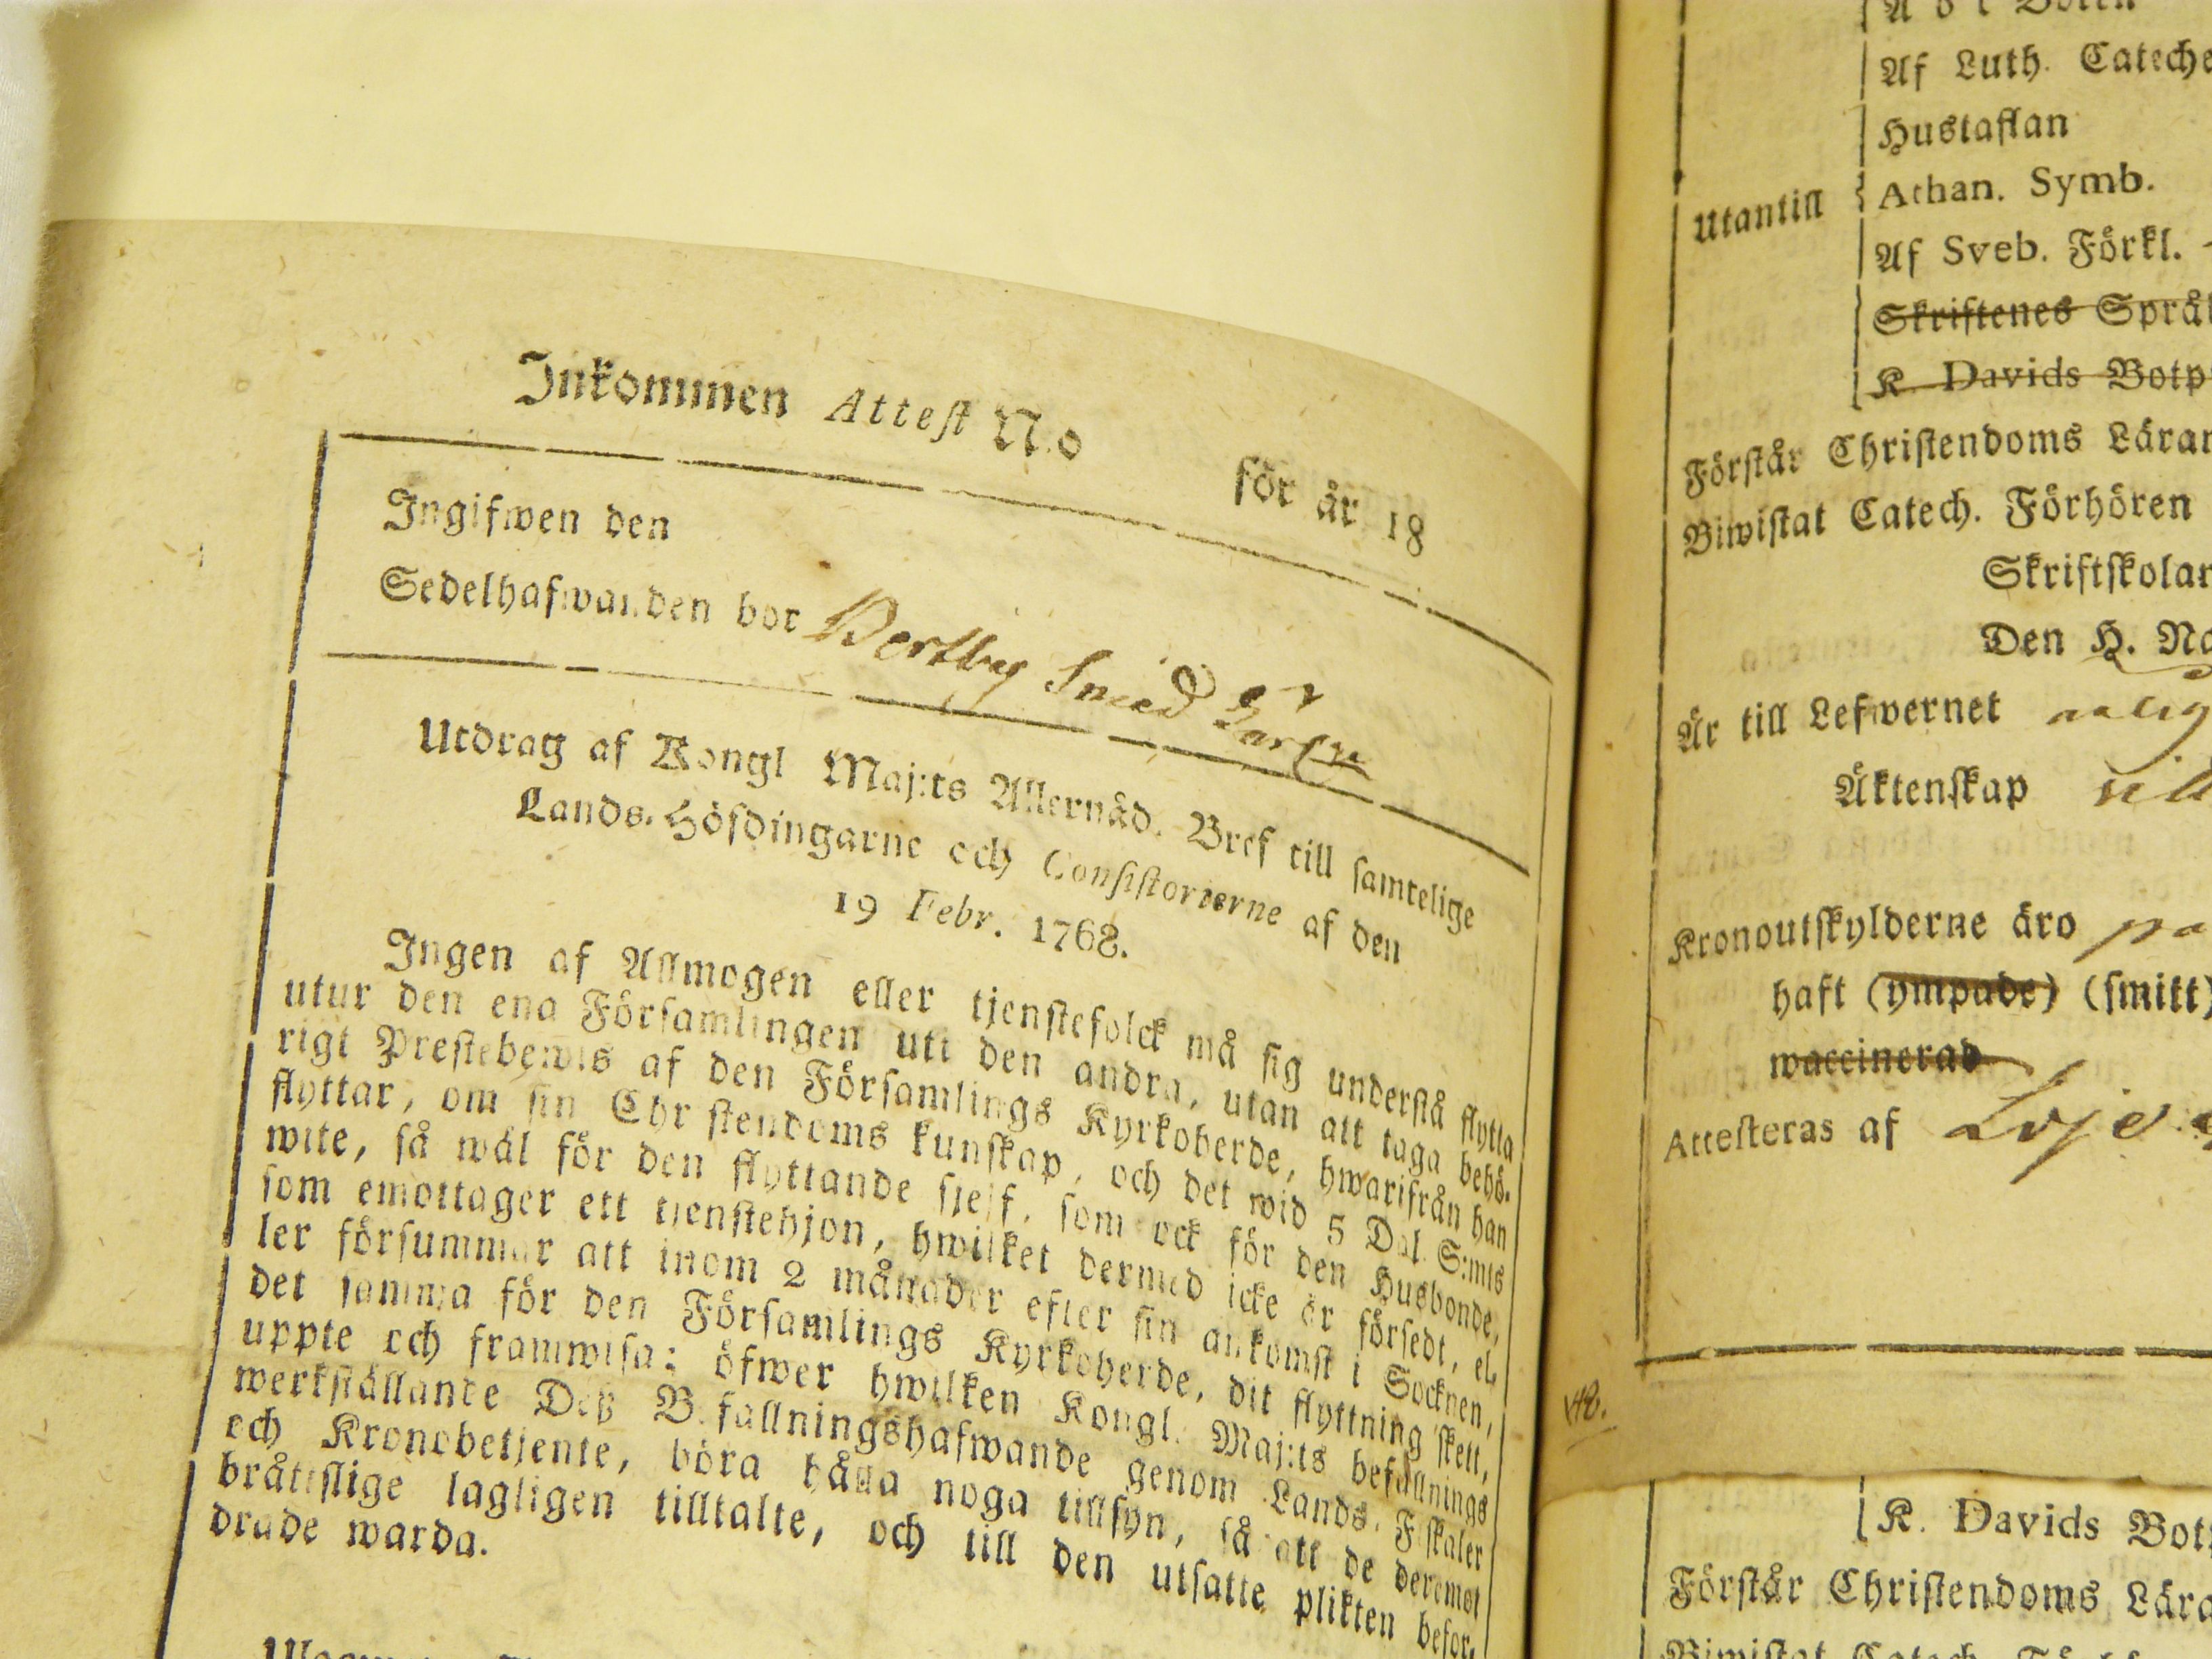 Inkommen Attest N:o för år 18
Ingifwen den
Sedelhafwanden bor Bertby
Utdrag af Kongl Maj:ts Allernåd. Bref till samtelige
Lands-Höfdingarne och Consistorierne af den
19 Febr. 1768.
Ingen af Allmogen eller tjenstefolck må sig understå flytta
utur den ena Församlingen uti den andra, utan att taga behö-
rigt Prestebewis af den Församlings Kyrkoherde, hwarifrån han
flyttar, om sin Christendoms kunskap, och det wid 5 Dal. S:mts
wite, så wäl för den flyttande sjelf, som ock för den Husbonde,
som emottager ett tjenstehjon, hwilket dermed icke är försedt, el-
ler försummar att inom 2 månader efter sin ankomst i Socknen,
det samma för den Församlings Kyrkoherde, dit flyttning skett,
uppte och framwisa; öfwer hwilken Kongl. Maj:ts befallnings
werkställande Deß Befallningshafwande genom Lands-Fiskaler
och Kronobetjente, böra hålla noga tillsyn, så att de deremot
bråttslige lagligen tilltalte, och till den utsatte plikten befor-
drade warda.
Af Luth. Cateche
Hustaflan
Utantill
Athan. Symb.
Af Sveb. Förkl.
Skriftenes Språk
K Davids Botp
Förstår Christendoms Läran
Biwistat Catech. Förhören
Skriftskolar
Den H. Na
Är till Lefwernet
Äktenskap
Kronoutskylderne äro
haft (ympade) (smitt)
waccinerad
Attesteras af
K. Davids Bot
Förstår Christendoms Lära